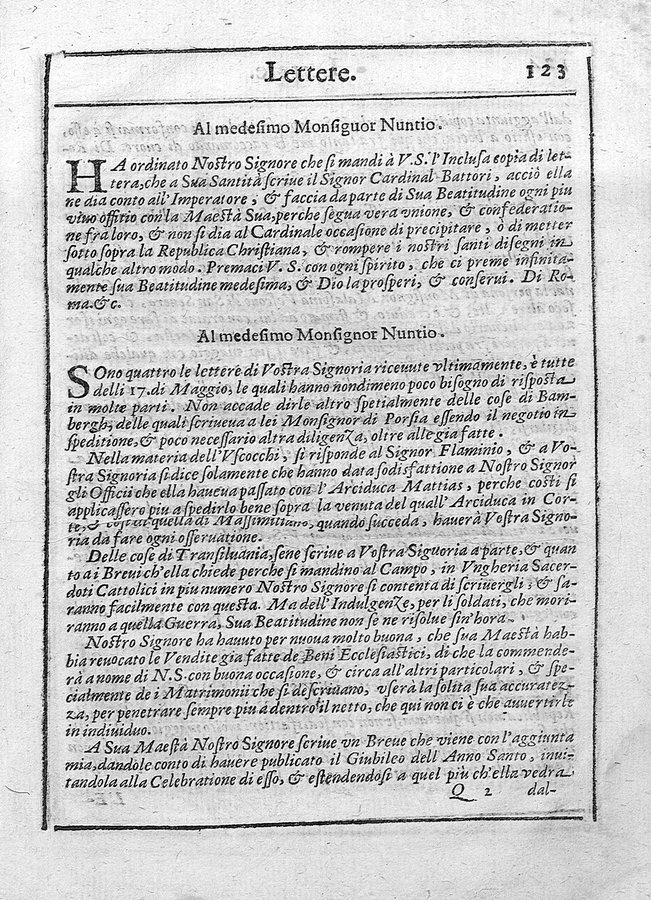 Lettere. 123
Al medesimo Monsiguor Nuntio.
HA ordinato Nostro Signore che si mandi à V.S. l'Inclusa copia di let-
tera, che a Sua Santità scriue il Signor Cardinal Battori, acciò ella
ne dia conto all'Imperatore, & faccia da parte di Sua Beatitudine ogni piu
viuo offitio con la Maestà Sua, perche segua vera vnione, & confederatio-
ne fra loro, & non si dia al Cardinale occasione di precipitare, ò di metter
sotto sopra la Republica Christiana, & rompere i nostri santi disegni in
qualche altro modo. Premaci V. S. con ogni spirito, che ci preme infinita-
mente sua Beatitudine medesima, & Dio la prosperi, & conserui. Di Ro-
ma. &c.
Al medesimo Monsignor Nuntio.
SOno quattro le lettere di Vostra Signoria riceuute vltimamente, è tutte
delli 17. di Maggio, le quali hanno nondimeno poco bisogno di risposta
in molte parti. Non accade dirle altro spetialmente delle cose di Bam-
bergh, delle quali scriueua a lei Monsignor di Porsia essendo il negotio in
speditione, & poco necessario altra diligenza, oltre alle gia fatte.
Nella materia dell'Vscocchi, si risponde al Signor Flaminio, & a Vo-
stra Signoria si dice solamente che hanno data sodisfattione a Nostro Signor
gli Officii che ella haueua passato con l'Arciduca Mattias, perche costi si
applicassero piu a spedirlo bene sopra la venuta del quall'Arciduca in Cor-
te, & cosi di quella di Massimiliano, quando succeda, hauerà Vostra Signo-
ria da fare ogni osseruatione.
Delle cose di Transiluania, sene scriue a Vostra Siguoria a parte, & quan
to a i Breui ch'ella chiede perche si mandino al Campo, in Vngheria Sacer-
doti Cattolici in piu numero Nostro Signore si contenta di scriuergli, & sa-
ranno facilmente con questa. Ma dell'Indulgenze, per li soldati, che mori-
ranno a quella Guerra, Sua Beatitudine non se ne risolue sin'hora.
Nostro Signore ha hauuto per nuoua molto buona, che sua Maestà hab-
bia reuocato le Vendite gia fatte de Beni Ecclesiastici, di che la commende-
rà a nome di N.S. con buona occasione, & circa all'altri particolari, & spe-
cialmente de i Matrimonii che si descriuano, vserà la solita sua accuratez-
za, per penetrare sempre piu à dentro il netto, che qui non ci è che auuertirle
in indiuiduo.
A Sua Maestà Nostro Signore scriue vn Breue che viene con l'aggiunta
mia, dandole conto di hauere publicato il Giubileo dell'Anno Santo, inui-
tandola alla Celebratione di esso, & estendendosi a quel piu ch'ella vedra
Q 2 dal-